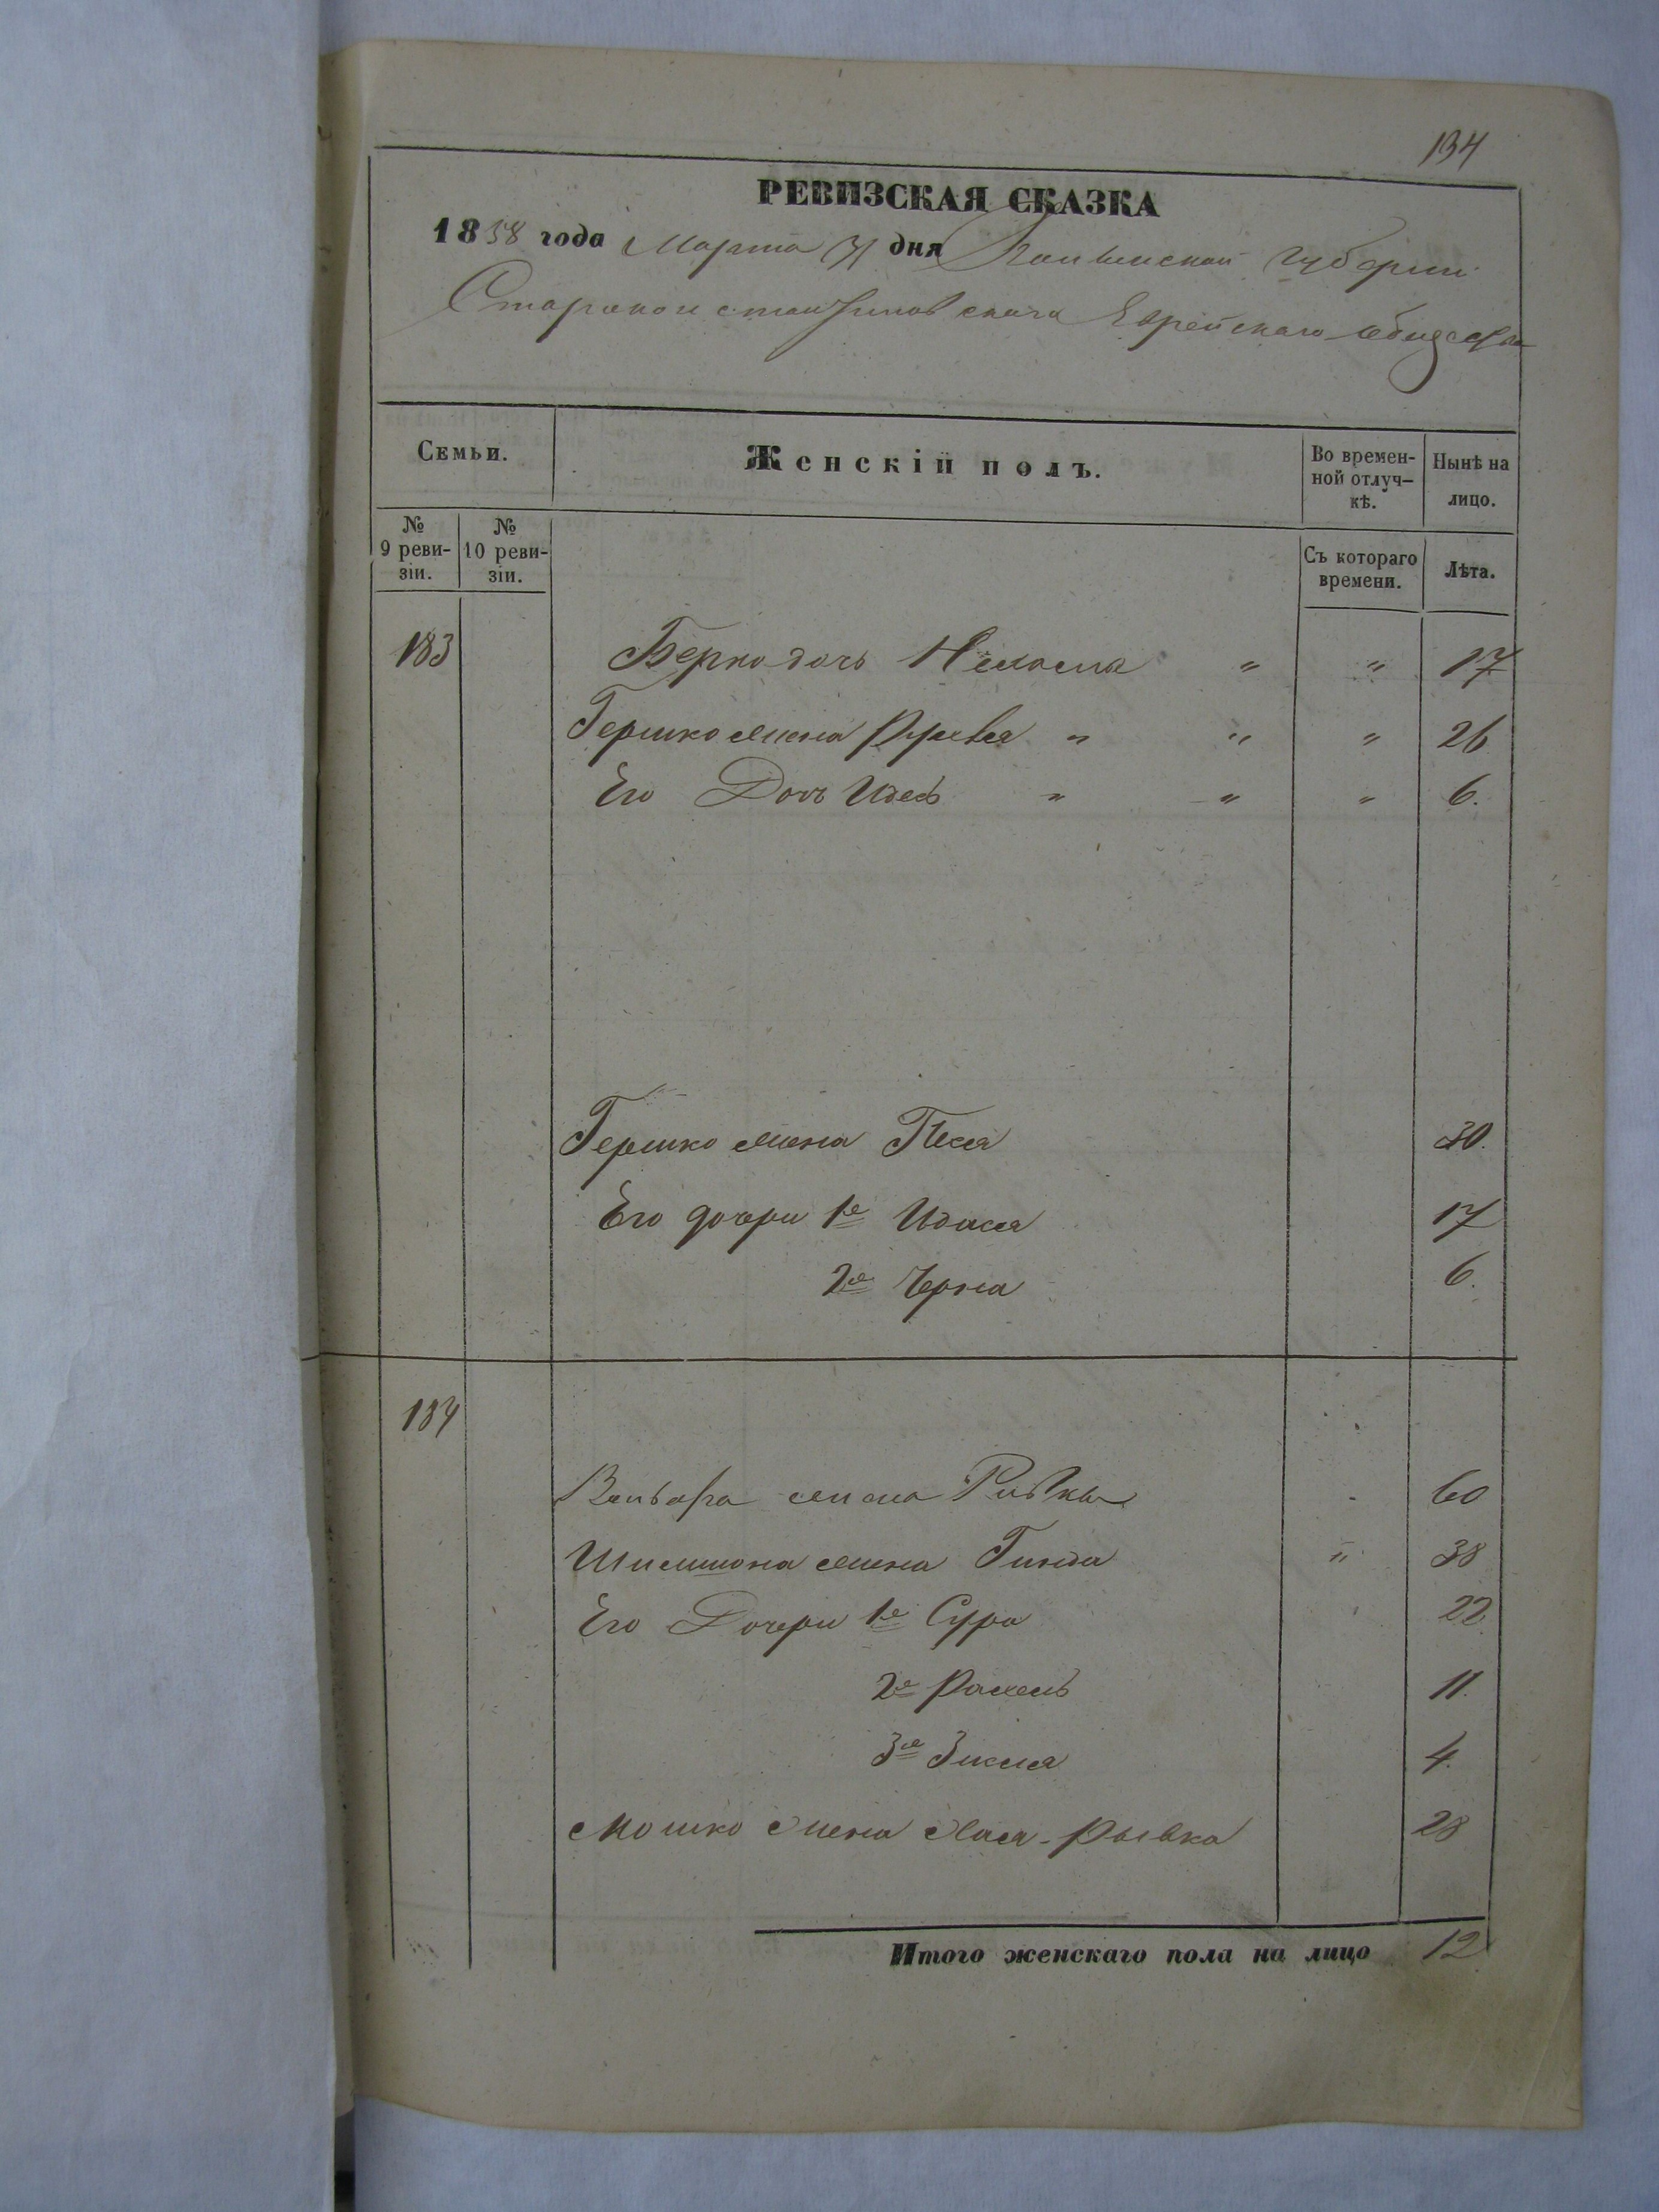 134
РЕВИЗСКАЯ СКАЗКА
1858 года Марта 31 дня Волынской Губернии
Староконстантиновскаго Еврейскаго Общества
Семьи.
Женскій полъ.
Во времен-
ной отлуч-
кѣ.
Нынѣ на
лицо.
№
9 реви-
зіи.
№
10 реви-
зіи.
Съ котораго
времени.
Лѣта.
183 Берко дочь Нехама " " 17
Гершко жена Рухля " " " 26
Его Дочь Идесь " " " 6.
Гершко жена Песя 30.
Его дочери 1е Идася 17
2е Черна 6.
184
жена Ривка 60
Шимшона жена Гинда " 38
Его Дочери 1е Сура 22
2е Рахель 11.
3е Зисля 4.
Мошко жена Хася-Рывка 28
Итого женскаго пола на лицо 12